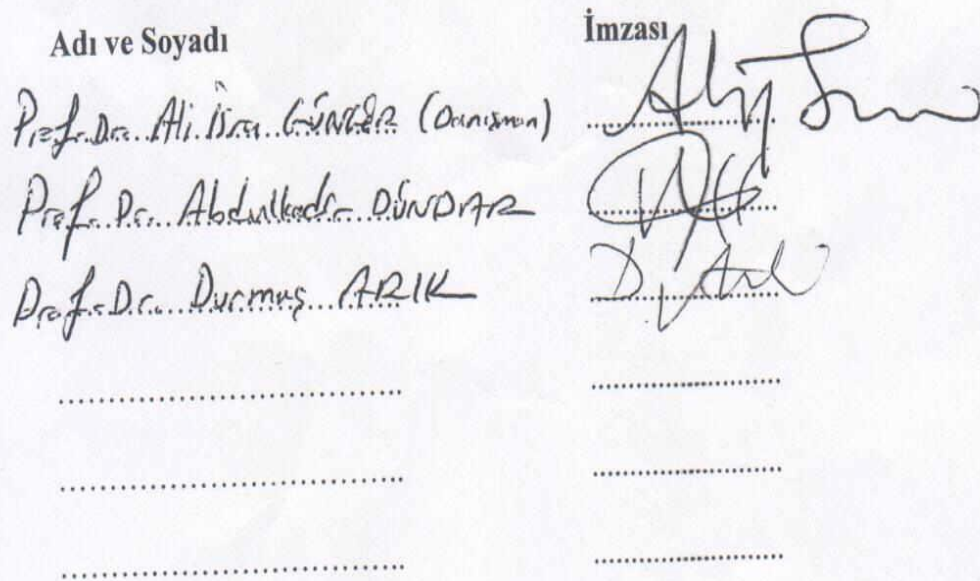 Adı ve Soyadı İmzası
Prof. Dr. Ali İsra GÜNGÖR (Danışman)
Prof. Dr. Abdulkadir DÜNDAR
Prof. Dr. Durmuş ARIK